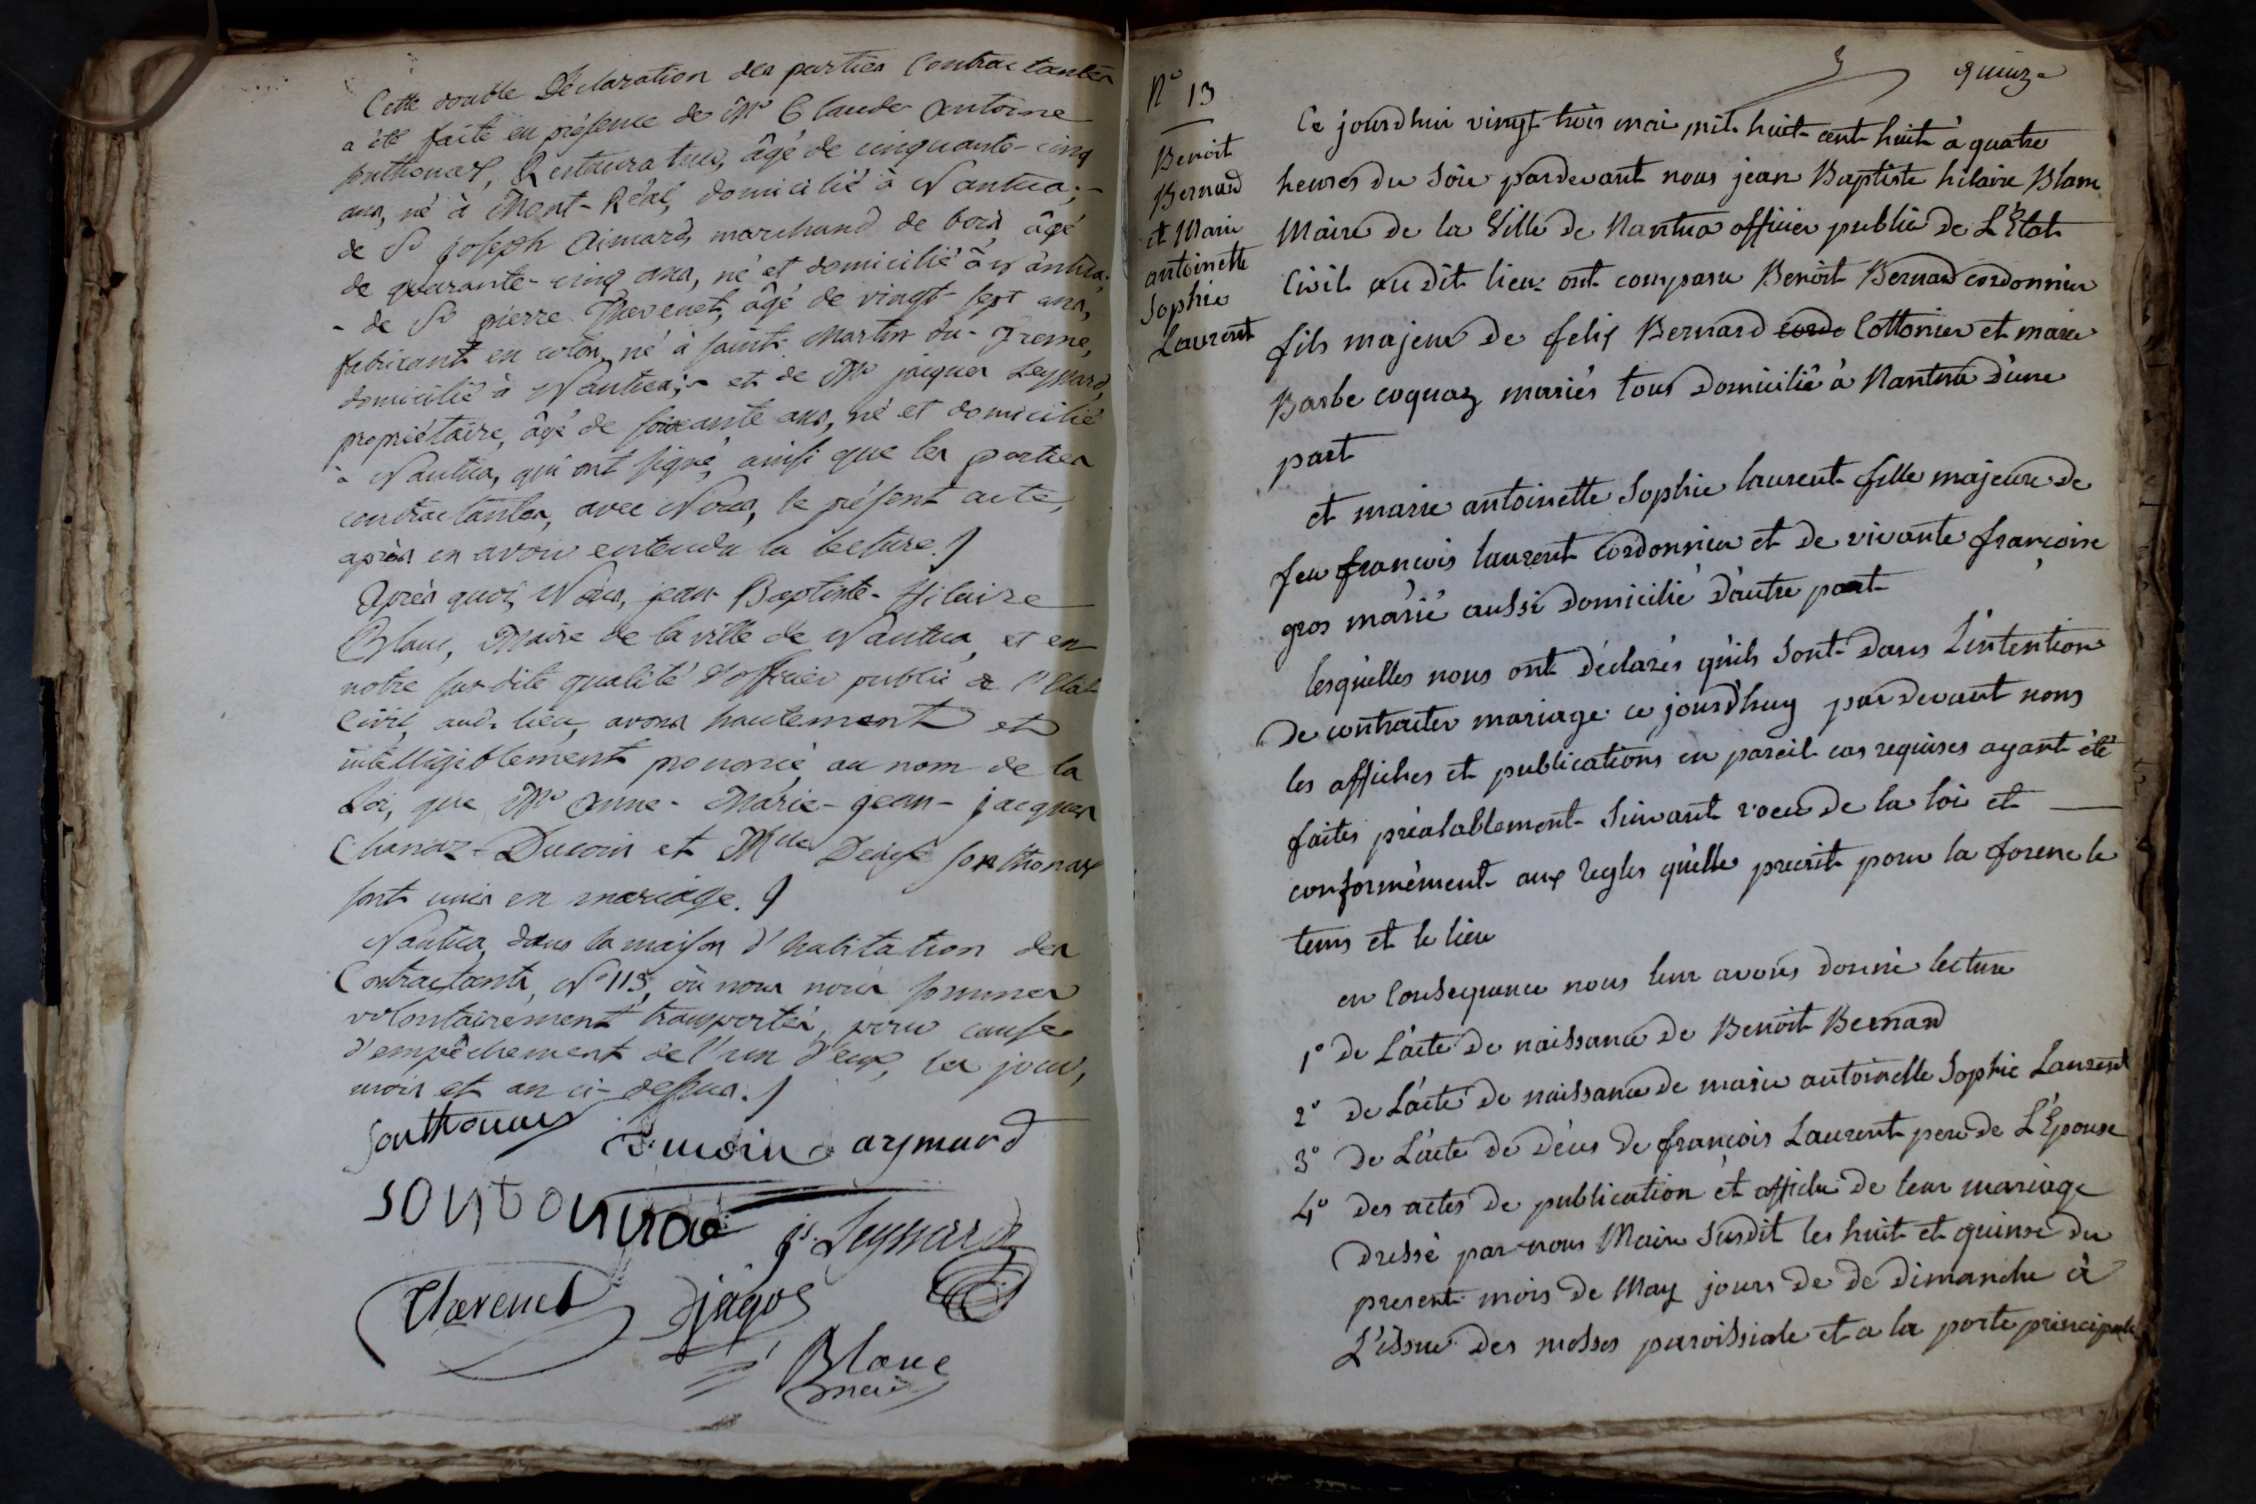 Cette double Déclaration des parties Contractantes
a été faite en présence de Mr Claude Antoine
Sonthonax, Restaurateur, âgé de cinquante-cinq
ans, né à Mont-Réal, domicilié à Nantua;-
de Sr Joseph Aimard, marchand de bois, âgé
de quarante-cinq ans, né et domicilié à Nantua;
- de Sr pierre Thevenet, âgé de vingt-sept ans,
fabricant en coton, né à saint-Martin-du-Freme,
domicilié à Nantua;- et de Mr jaques Leyssard,
propriétaire, âgé de soixante ans, né et domicilié
à Nantua, qui ont signé, ainsi que les parties
contractantes, avec Nous, le présent acte,
après en avoir entendu la lecture.
Après quoi, Nous, jean-Baptiste-Hilaire
Blanc, Maire de la ville de Nantua, et en
notre susdite qualité d'officier public de l'Etat
civil, aud. lieu, avons hautement et
intelligiblement prononcé, au nom de la
Loi, que Mr Anne-Marie-jean-jacques
Chanaz-Ducoin et Mlle Sonthonax
sont unis en mariage.
Nantua, dans la maison d'habitation des
Contractants, No 113, où nous nous sommes
volontairement transportés, pour cause
d'empêchement de l'un d'eux, les jour,
mois et an ci-dessus.
Sonthonax Ducoin aymard
js. Leyssard
Thevenet
Blanc
maire
quinze
No 13
Benoit
Bernard
et Marie
antoinette
Sophie
Laurent
Ce jourdhui vingt trois mai mil huit cent huit à quatre
heures du soir pardevant nous jean Baptiste hilaire Blanc
Maire de la Ville de Nantua officier public de L'Etat
Civil au dit lieu ont comparu Benoit Bernard cordonnier
fils majeur de felix Bernard cordo Cottonier et marie
Barbe coquaz mariés tous domicilié à Nantua d'une
part
et marie antoinette Sophie laurent fille majeure de
feu françois laurent Cordonnier et de vivante françoise
gros marié aussi domicilié d'autre part
lesquelles nous ont déclarés qu'ils sont dans L'intention
de contracter mariage ce jourd'huy pardevant nous
les affiches et publications en pareil cas requises ayant été
faites préalablement suivant voeu de la loi et
conformément aux regles qu'elle precrit pour la forme le
tems et le lieu
en Consequence nous leur avons donné lecture
1o de L'acte de naissance de Benoit Bernard
2o de L'acte de naissance de marie antoinette Sophie Laurent
3o de L'acte de décès de françois Laurent pere de L'Epouse
4o des actes de publication et affiche de leur mariage
dressé par nous Maire susdit les huit et quinse du
present mois de May jours de de dimanche à
L'issue des messes paroissiale et a la porte principale